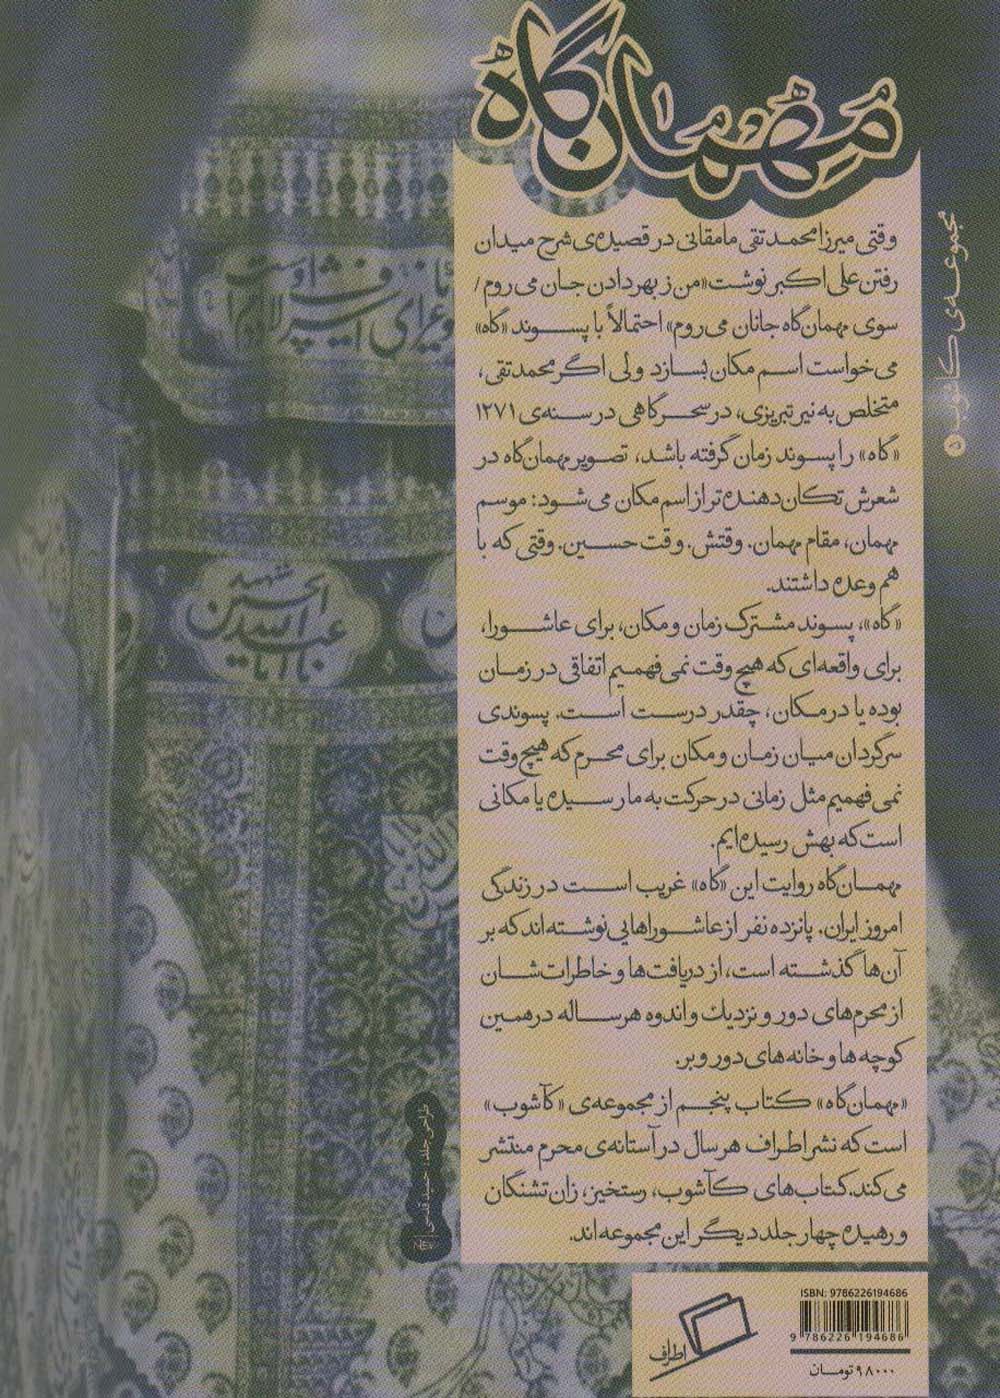 مهمان‌گاه
وقتی میرزا محمد تقی مامقانی در قصیده‌ی شرح میدان
رفتن علی اکبر نوشت «من ز بهر دادن جان می‌روم/
سوی مهمان‌گاه جانان می‌روم» احتمالاً با پسوند «گاه»
می‌خواست اسم مکان بسازد ولی اگر محمد تقی،
متخلص به نیر تبریزی، در سحرگاهی در سنه‌ی ۱۲۷۱
«گاه» را پسوند زمان گرفته باشد، تصویر مهمان‌گاه در
شعرش تکان‌دهنده‌تر از اسم مکان می‌شود: موسم
مهمان، مقام مهمان. وقتش. وقت حسین. وقتی که با
هم وعده داشتند.
«گاه»، پسوند مشترک زمان و مکان، برای عاشورا،
برای واقعه‌ای که هیچ وقت نمی‌فهمیم اتفاقی در زمان
بوده یا در مکان، چقدر درست است. پسوندی
سرگردان میان زمان و مکان برای محرم که هیچ وقت
نمی‌فهمیم مثل زمانی در حرکت به ما رسیده یا مکانی
است که بهش رسیده‌ایم.
مهمان‌گاه روایت این «گاه» غریب است در زندگی
امروز ایران. پانزده نفر از عاشوراهایی نوشته‌اند که بر
آن‌ها گذشته است، از دریافت‌ها و خاطرات‌شان
از محرم‌های دور و نزدیک و اندوه هر ساله در همین
کوچه‌ها و خانه‌های دور و بر.
«مهمان‌گاه» کتاب پنجم از مجموعه‌ی «کآشوب»
است که نشر اطراف هر سال در آستانه‌ی محرم منتشر
می‌کند. کتاب‌های کآشوب، رستخیز، زان تشنگان
و رهیده چهار جلد دیگر این مجموعه‌اند.
مجموعه‌ی کآشوب ۵
شهید
ابا عبدالله الحسین
طراحی جلد: حمید قدسی
اطراف
ISBN: 9786226194686
9 786226 194686
۹۸۰۰۰ تومان